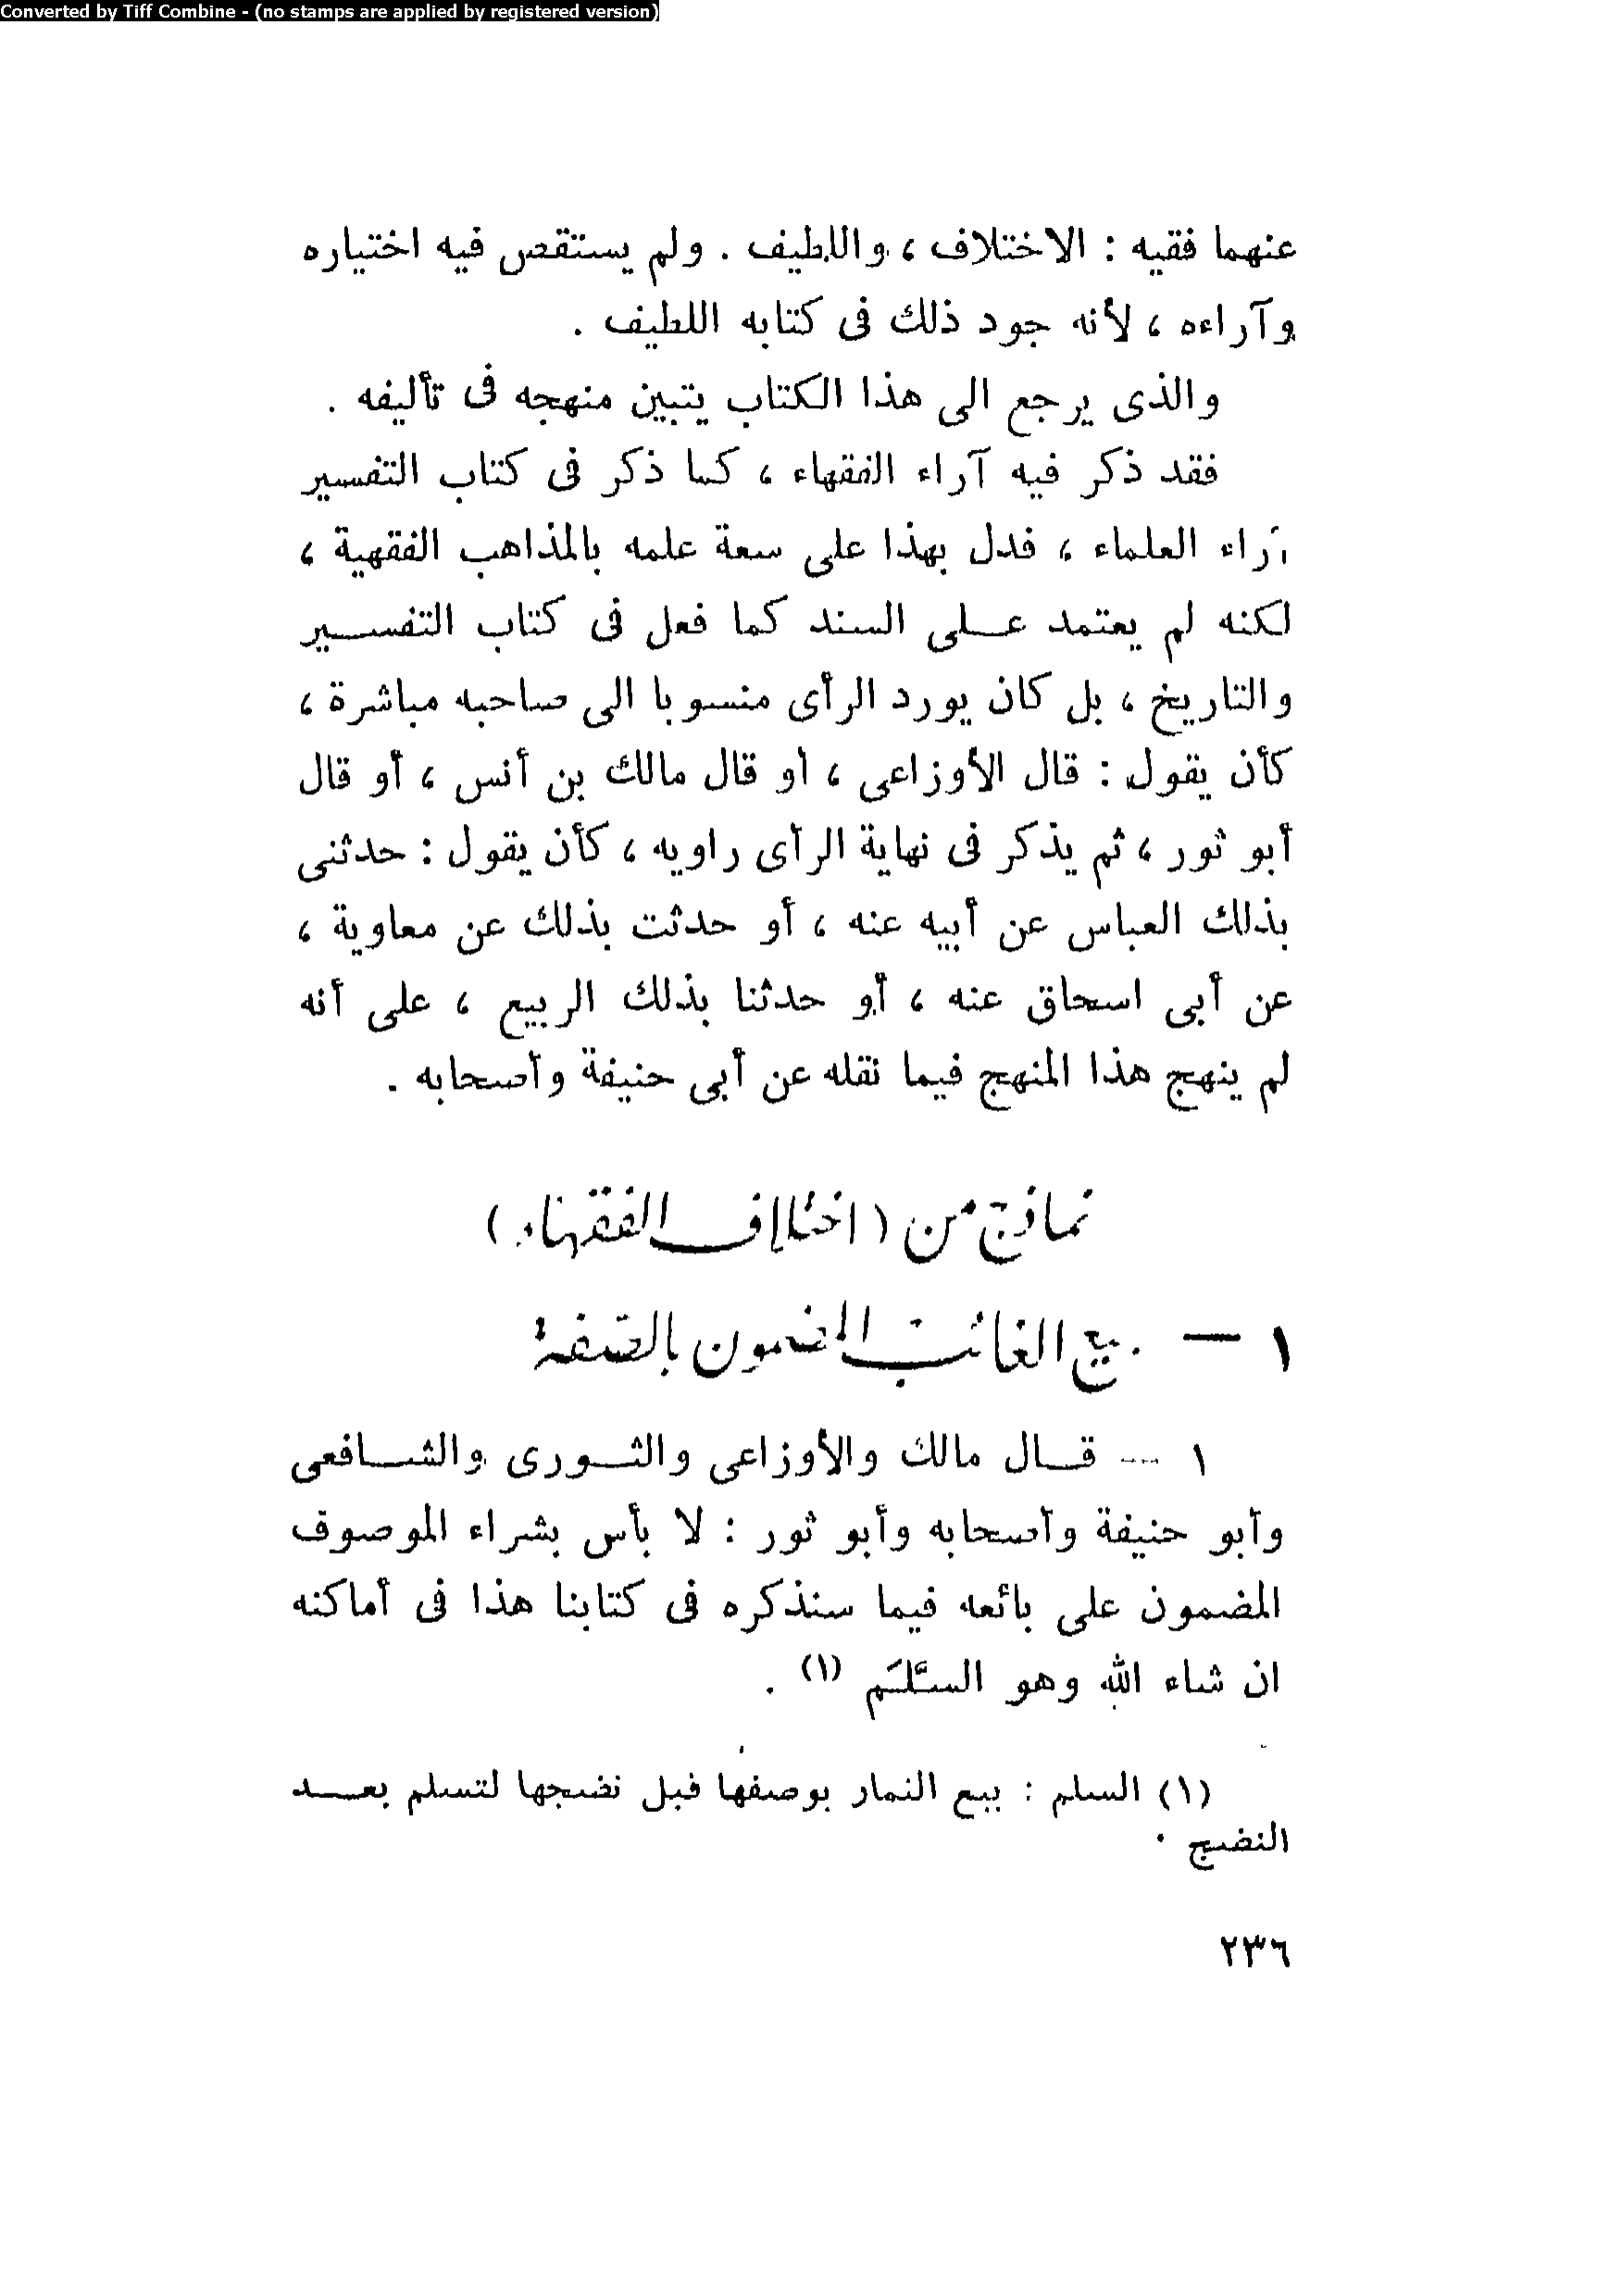 Converted by Tiff Combine - (no stamps are applied by registered version)
عنهما فقيه : الاختلاف ، واللطيف . ولم يستقص فيه اختياره
وآراءه ، لأنه جود ذلك فى كتابه اللطيف .
والذى يرجع الى هذا الكتاب يتبين منهجه فى تأليفه .
فقد ذكر فيه آراء الفقهاء ، كما ذكر فى كتاب التفسير
آراء العلماء ، فدل بهذا على سعة علمه بالمذاهب الفقهية ،
لكنه لم يعتمد عـلى السند كما فعل فى كتاب التفســير
والتاريخ ، بل كان يورد الرأى منسوبا الى صاحبه مباشرة ،
كأن يقول : قال الأوزاعى ، أو قال مالك بن أنس ، أو قال
أبو ثور ، ثم يذكر فى نهاية الرأى راويه ، كأن يقول : حدثنى
بذلك العباس عن أبيه عنه ، أو حدثت بذلك عن معاوية ،
عن أبى اسحاق عنه ، أو حدثنا بذلك الربيع ، على أنه
لم ينهج هذا المنهج فيما نقله عن أبى حنيفة وأصحابه .
نماذج من ( اختلاف الفقهاء )
١ — بيع الغائب المضمون بالصفة
١ — قـال مالك والأوزاعى والثــورى والشــافعى
وأبو حنيفة وأصحابه وأبو ثور : لا بأس بشراء الموصوف
المضمون على بائعه فيما سنذكره فى كتابنا هذا فى أماكنه
ان شاء الله وهو السَّلَم (١) .
(١) السلم : بيع الثمار بوصفها قبل نضجها لتسلم بعــد
النضج .
٢٣٦